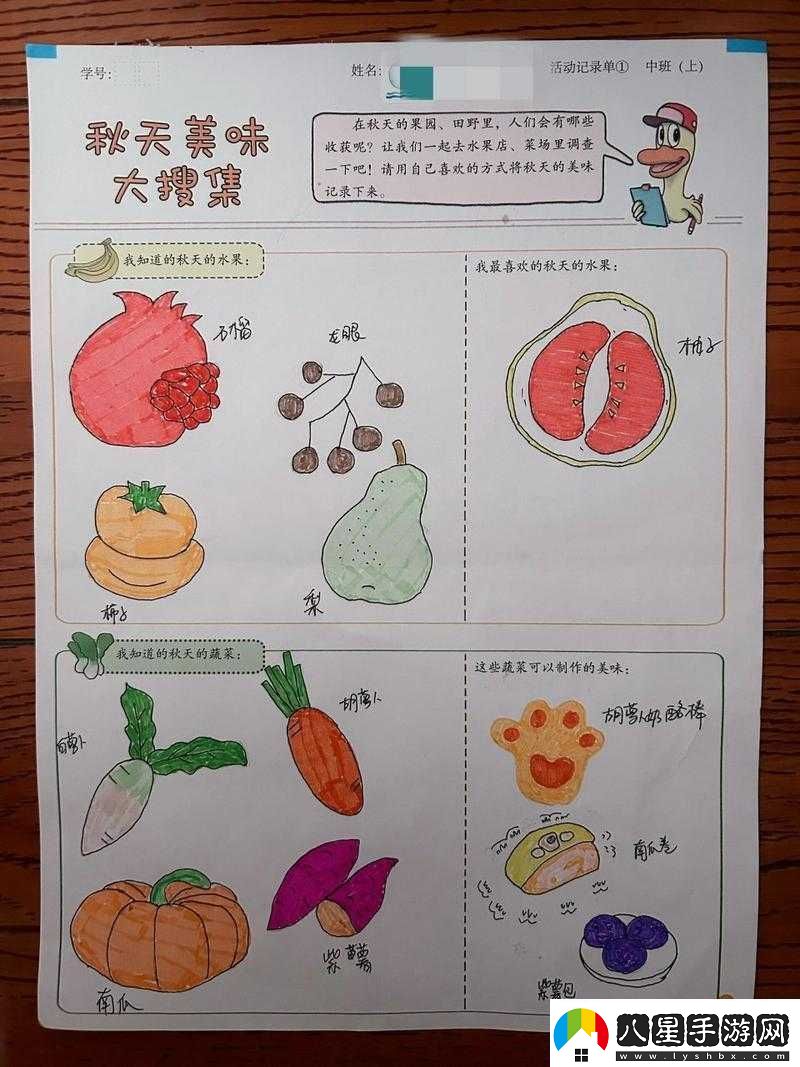 学号：
姓名：
活动记录单① 中班（上）
秋天美味
大搜集
在秋天的果园、田野里，人们会有哪些
收获呢？让我们一起去水果店、菜场里调查
一下吧！请用自己喜欢的方式将秋天的美味
记录下来。
我知道的秋天的水果：
石榴
龙眼
柿子
梨
我最喜欢的秋天的水果：
柚子
我知道的秋天的蔬菜：
白萝卜
胡萝卜
南瓜
紫薯
这些蔬菜可以制作的美味：
胡萝卜奶酪棒
南瓜卷
紫薯包
八星手游网
www.lyshbx.com